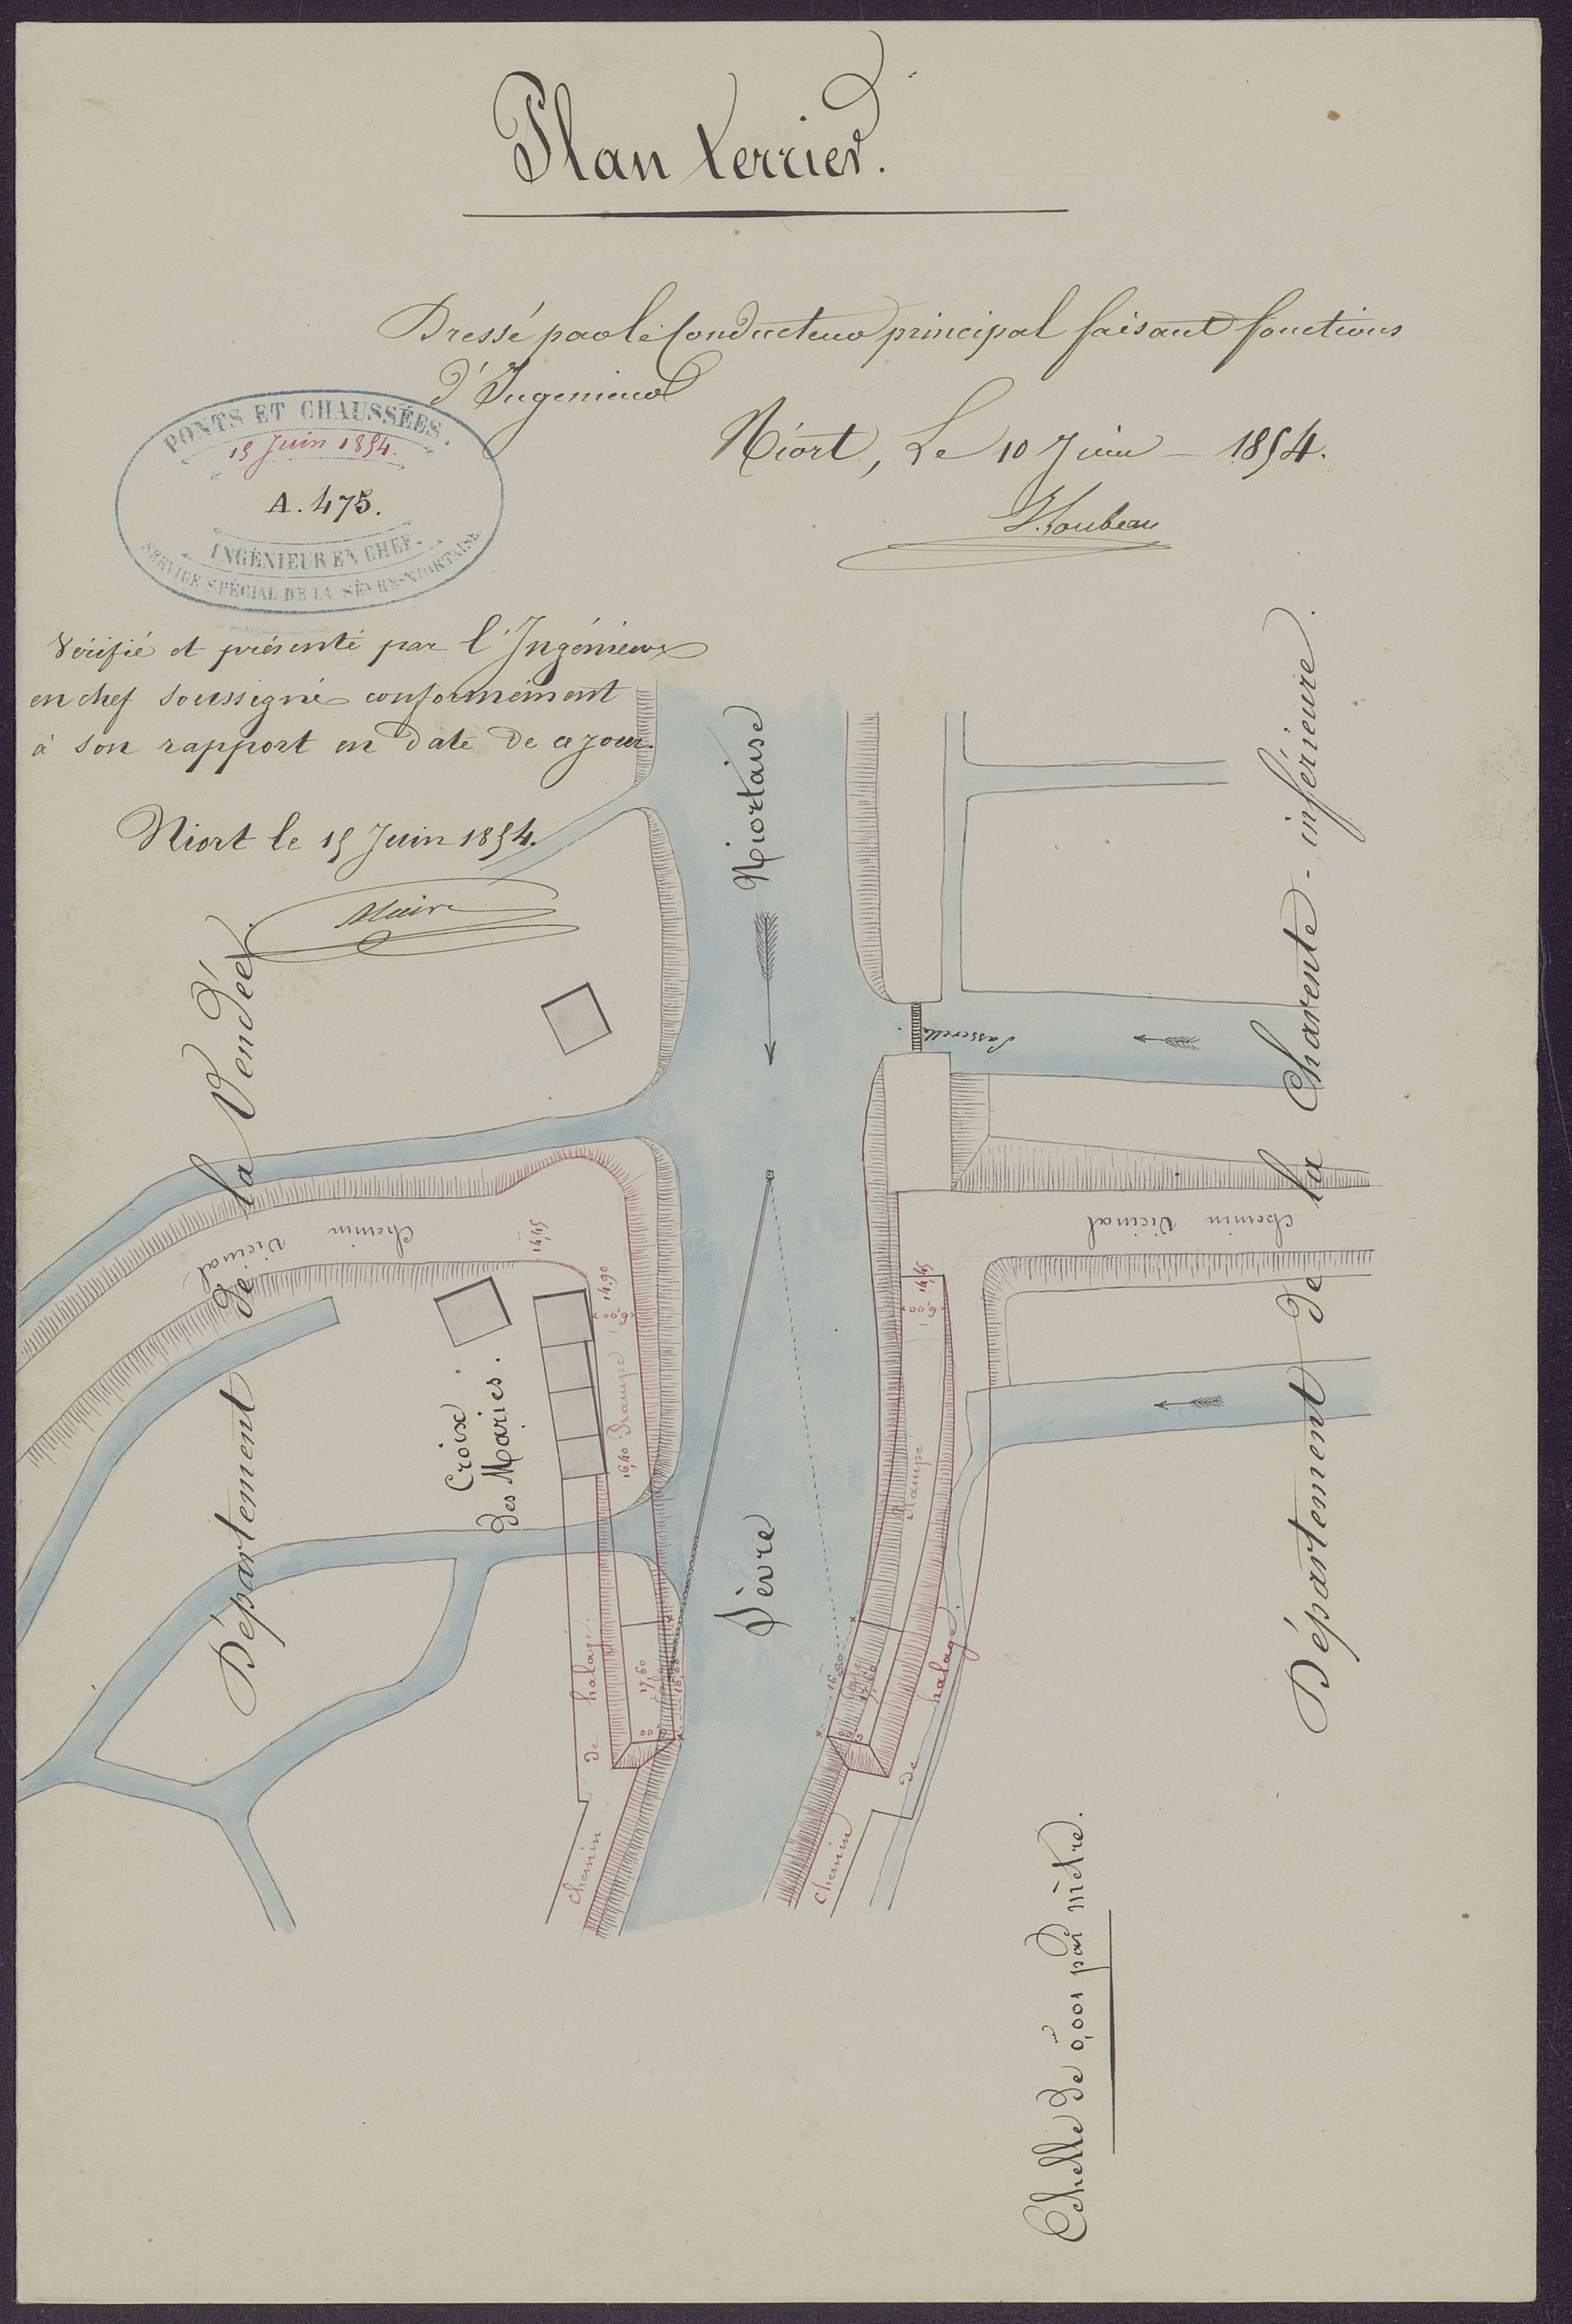 Plan terrier.
Dressé par le Conducteur principal faisant fonctions
d'Ingenieur
Niort, Le 10 Juin 1854.
PONTS ET CHAUSSÉES.
15 Juin 1854.
A. 475.
INGÉNIEUR EN CHEF.
SERVICE SPÉCIAL DE LA SÈVRE-NIORTAISE
Vérifié et présenté par l'Ingénieur
en chef soussigné conformément
à son rapport en date de ce jour.
Niort le 15 Juin 1854.
Sèvre Niortaise
Passerelle.
Département de la Vendée.
Département de la Charente-inférieure.
Chemin Vicinal
Chemin Vicinal
Croix
des Maries.
14,45
14,90
6,00
16,40
Rampe
17,60
16,80
Chemin de halage.
14,45
6,00
Rampe
16,80
17,60
Chemin de halage.
Echelle de 0,001 par mètre.